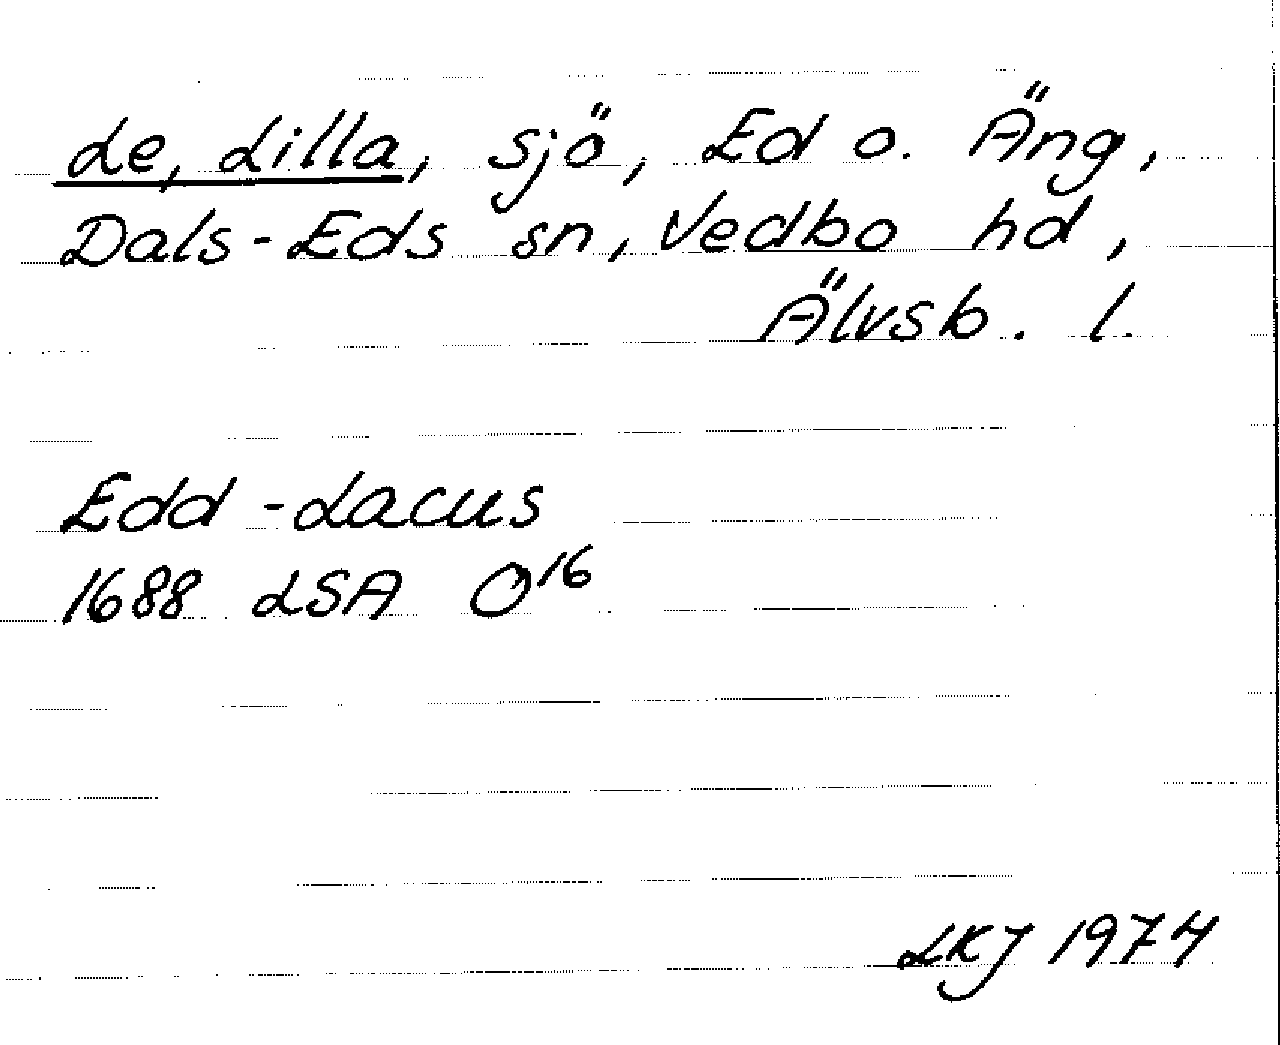 Le, Lilla, sjö, Ed o. Äng,
Dals-Eds sn, Vedbo hd,
Älvsb. l.
Edd-Lacus
1688 LSA O16
LKJ 1974